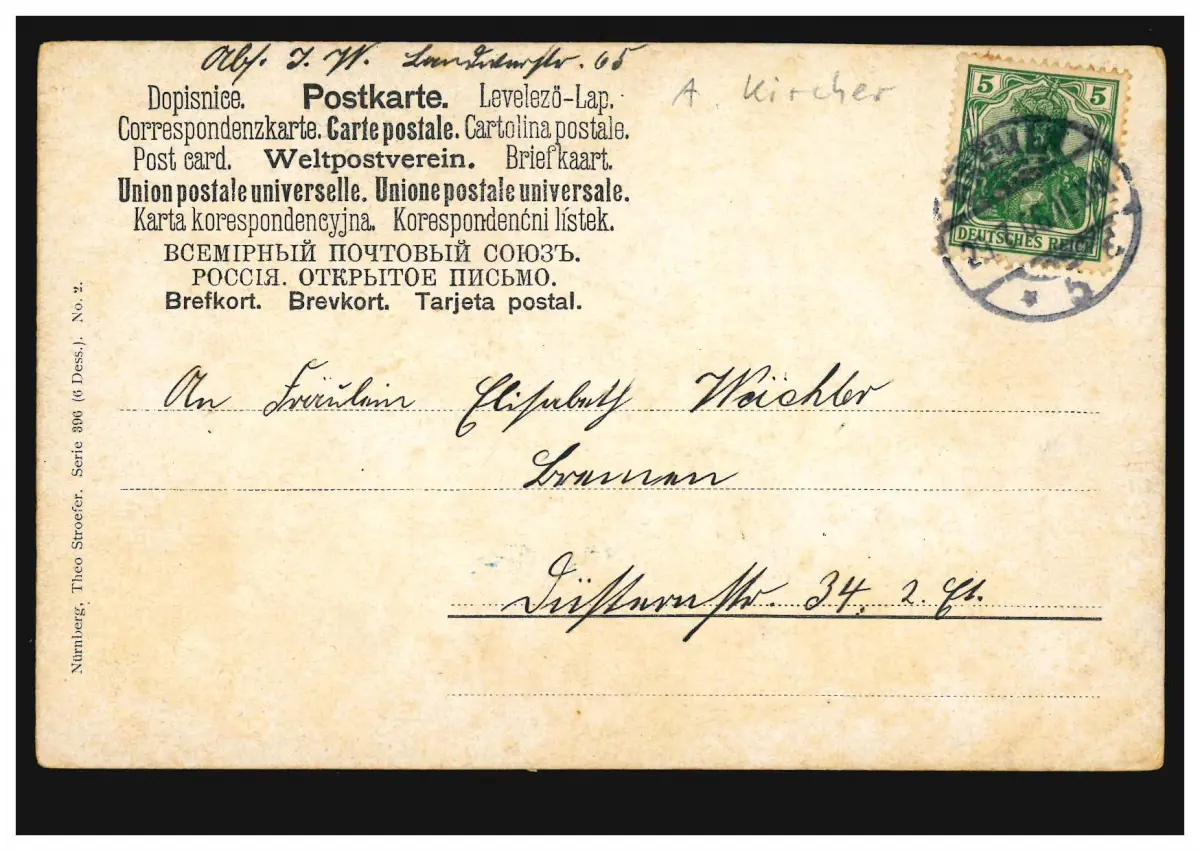 Abs. J. W. Landwerstr. 65
A. Kircher
Dopisnice. Postkarte. Levelező-Lap.
Correspondenzkarte. Carte postale. Cartolina postale.
Post card. Weltpostverein. Briefkaart.
Union postale universelle. Unione postale universale.
Karta korespondencyjna. Korespondenćni lístek.
ВСЕМІРНЫЙ ПОЧТОВЫЙ СОЮЗЪ.
РОССІЯ. ОТКРЫТОЕ ПИСЬМО.
Brefkort. Brevkort. Tarjeta postal.
5 5
DEUTSCHES REICH
BREMEN
An Fräulein Elisabeth Wächter
Bremen
Düsternstr. 34, 2. Et.
Nürnberg, Theo Stroefer. Serie 396 (6 Dess.). No. 2.